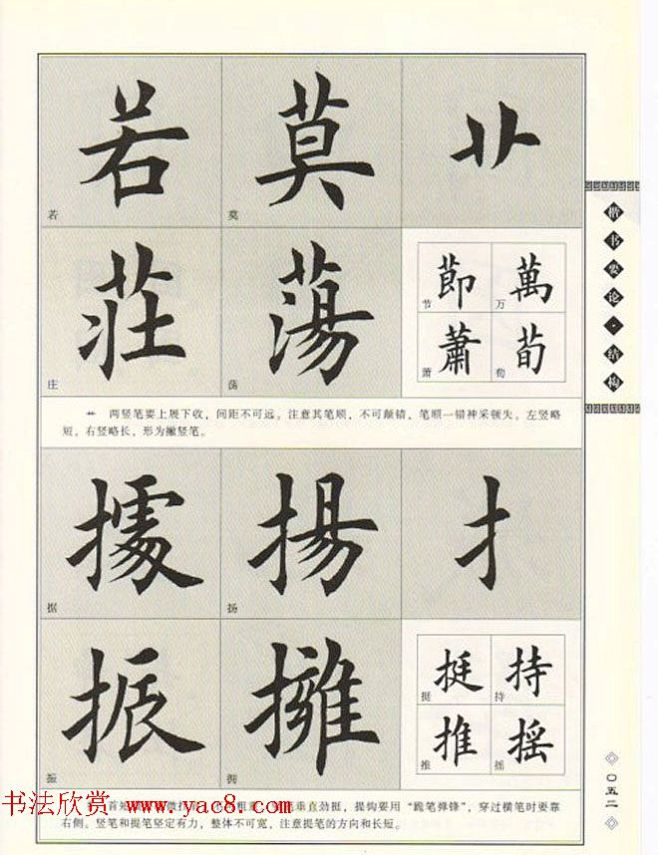 若 莫 艹
若 莫
莊 蕩
庄 荡
節 萬
节 万
蕭 荀
萧 荀
艹 两竖笔要上展下收，间距不可远。注意其笔顺，不可颠错，笔顺一错神采顿失。左竖略
短，右竖略长，形为撇竖笔。
據 揚 扌
据 扬
振 擁
振 拥
挺 持
挺 持
推 摇
推 摇
垂直劲挺，提钩要用“跪笔弹锋”，穿过横笔时要靠
右侧。竖笔和提笔坚定有力，整体不可宽，注意提笔的方向和长短。
书法欣赏 www.yac8.com
楷书要论·结构
〇五二